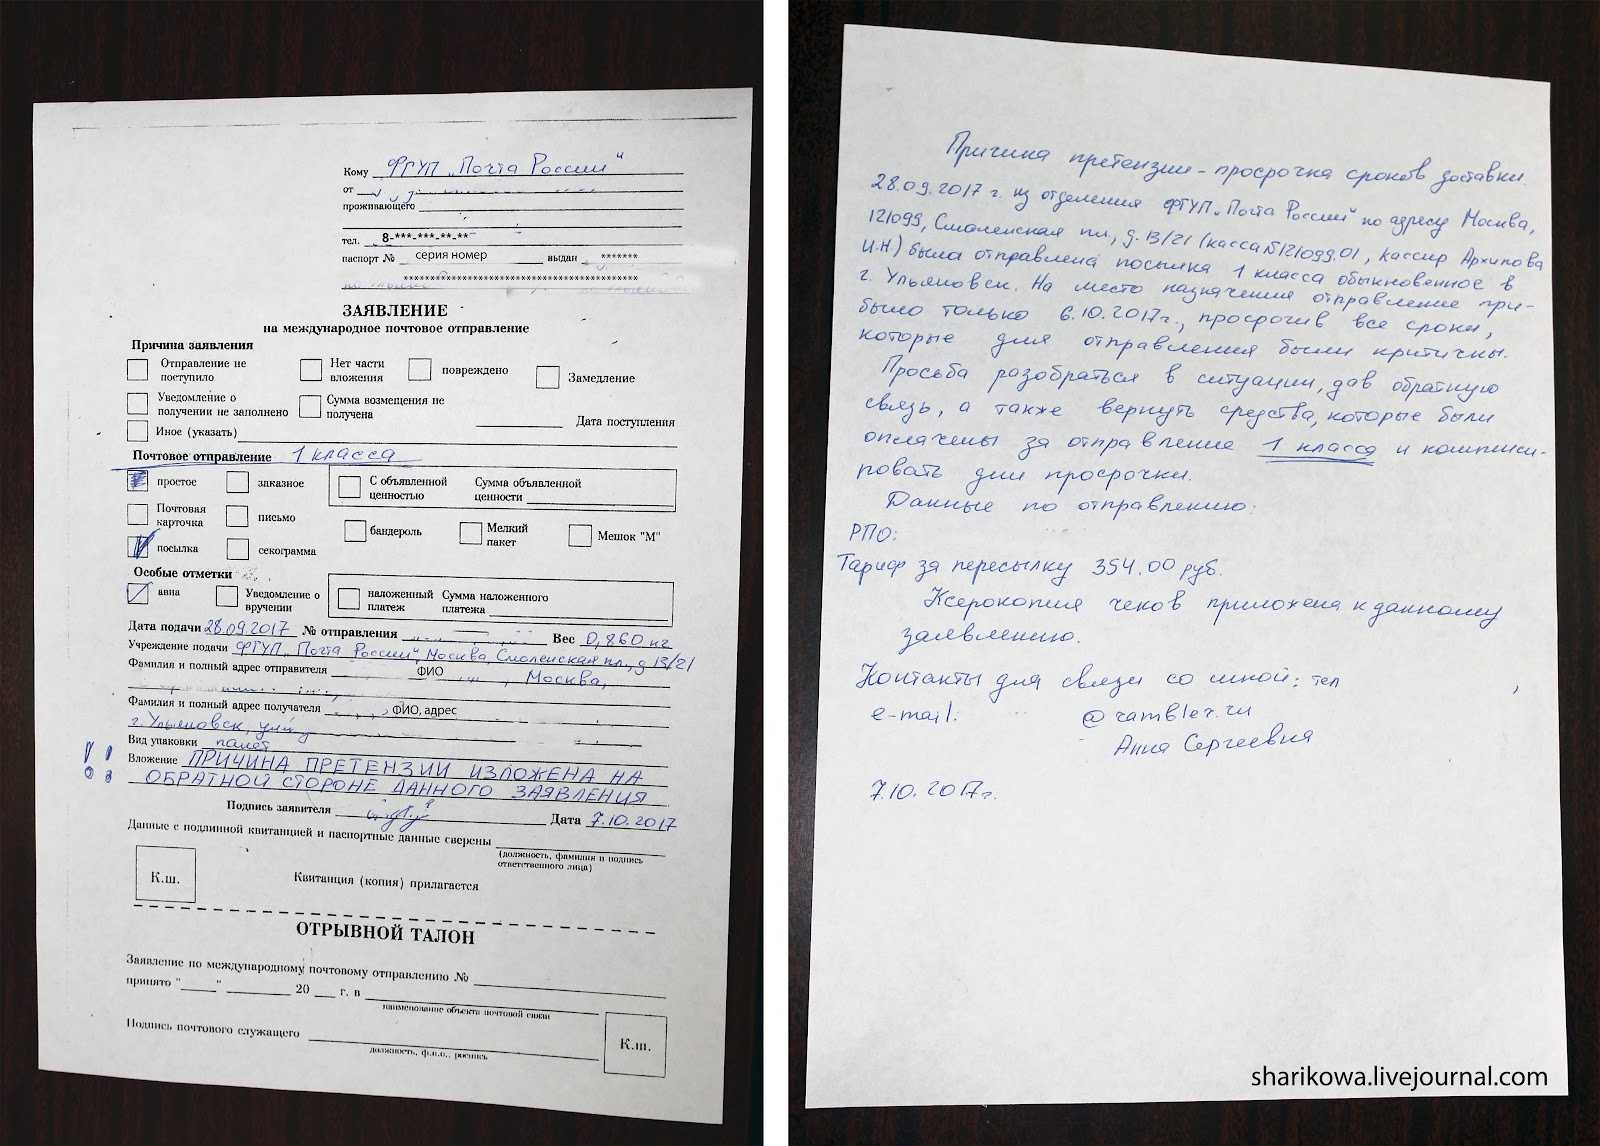 Кому ФГУП „Почта России"
от
проживающего
тел. 8-***-***-**-**
паспорт № серия номер выдан *******
**************************************
ЗАЯВЛЕНИЕ
на международное почтовое отправление
Причина заявления
Отправление не поступило Нет части вложения повреждено Замедление
Уведомление о получении не заполнено Сумма возмещения не получена Дата поступления
Иное (указать)
Почтовое отправление 1 класса
простое заказное С объявленной ценностью Сумма объявленной ценности
Почтовая карточка письмо бандероль Мелкий пакет Мешок "М"
посылка секограмма
Особые отметки
авиа Уведомление о вручении наложенный платеж Сумма наложенного платежа
Дата подачи 28.09.2017 № отправления Вес 0,860 кг
Учреждение подачи ФГУП „Почта России", Москва, Смоленская пл., д 13/21
Фамилия и полный адрес отправителя ФИО , Москва,
Фамилия и полный адрес получателя ФИО, адрес
г. Ульяновск,
Вид упаковки пакет
!! Вложение ПРИЧИНА ПРЕТЕНЗИИ ИЗЛОЖЕНА НА
ОБРАТНОЙ СТОРОНЕ ДАННОГО ЗАЯВЛЕНИЯ
Подпись заявителя Дата 7.10.2017
Данные с подлинной квитанцией и паспортные данные сверены
(должность, фамилия и подпись
ответственного лица)
К.ш. Квитанция (копия) прилагается
ОТРЫВНОЙ ТАЛОН
Заявление по международному почтовому отправлению №
принято "____" ________ 20 ___ г. в
наименование объекта почтовой связи
Подпись почтового служащего
должность, ф.и.о., роспись
К.ш.
Причина претензии - просрочка сроков доставки.
28.09.2017 г. из отделения ФГУП „Почта России" по адресу Москва,
121099, Смоленская пл, д. 13/21 (касса №121099.01, кассир Архипова
И.Н.) была отправлена посылка 1 класса обыкновенное в
г. Ульяновск. На место назначения отправление при-
было только 6.10.2017г., просрочив все сроки,
которые для отправления были критичны.
Просьба разобраться в ситуации, дав обратную
связь, а также вернуть средства, которые были
оплачены за отправление 1 класса и компенси-
ровать дни просрочки.
Данные по отправлению:
РПО:
Тариф за пересылку 354.00 руб.
Ксерокопия чеков приложена к данному
заявлению.
Контакты для связи со мной: тел ,
e-mail: @rambler.ru
Анна Сергеевна
7.10.2017г.
sharikowa.livejournal.com